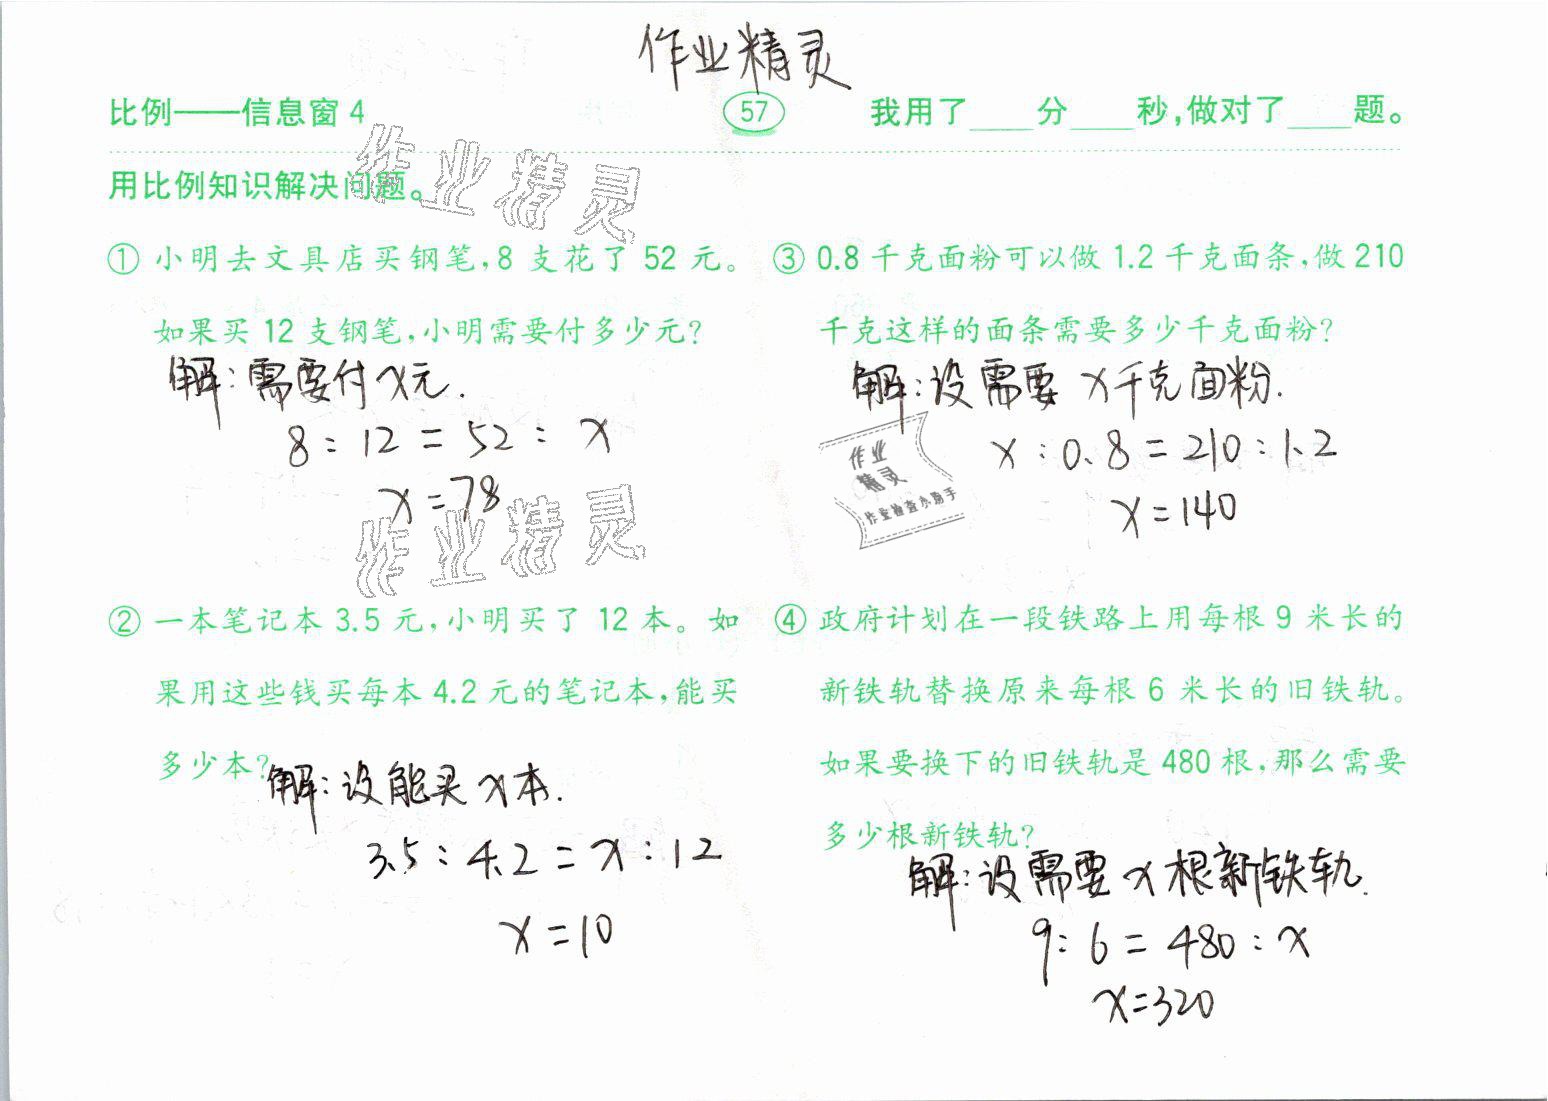 作业精灵
比例——信息窗4
57
我用了____分____秒,做对了____题。
用比例知识解决问题。
作业精灵
① 小明去文具店买钢笔,8 支花了 52 元。
如果买 12 支钢笔,小明需要付多少元?
解:需要付x元.
8 : 12 = 52 : x
x = 78
作业精灵
② 一本笔记本 3.5 元,小明买了 12 本。如
果用这些钱买每本 4.2 元的笔记本,能买
多少本?
解:设能买x本.
3.5 : 4.2 = x : 12
x = 10
③ 0.8 千克面粉可以做 1.2 千克面条,做 210
千克这样的面条需要多少千克面粉?
解:设需要x千克面粉.
x : 0.8 = 210 : 1.2
x = 140
作业
精灵
作业检查小助手
④ 政府计划在一段铁路上用每根 9 米长的
新铁轨替换原来每根 6 米长的旧铁轨。
如果要换下的旧铁轨是 480 根,那么需要
多少根新铁轨?
解:设需要x根新铁轨.
9 : 6 = 480 : x
x = 320